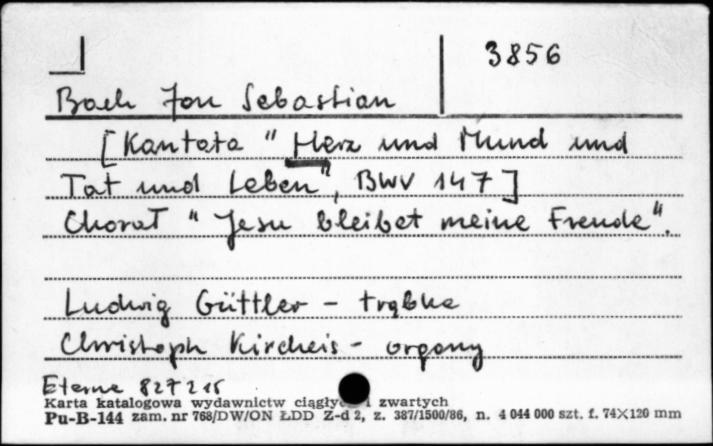 3856
Bach Jan Sebastian
[Kantata "Herz und Mund und
Tat und Leben", BWV 147]
Chorał "Jesu bleibet meine Freude".
Ludwig Güttler – trąbka
Christoph Kircheis – organy
Eterna 827 215
Karta katalogowa wydawnictw ciągłyc i zwartych
Pu-B-144 zam. nr 768/DW/ON ŁDD Z-d 2, z. 387/1500/86, n. 4 044 000 szt. f. 74×120 mm